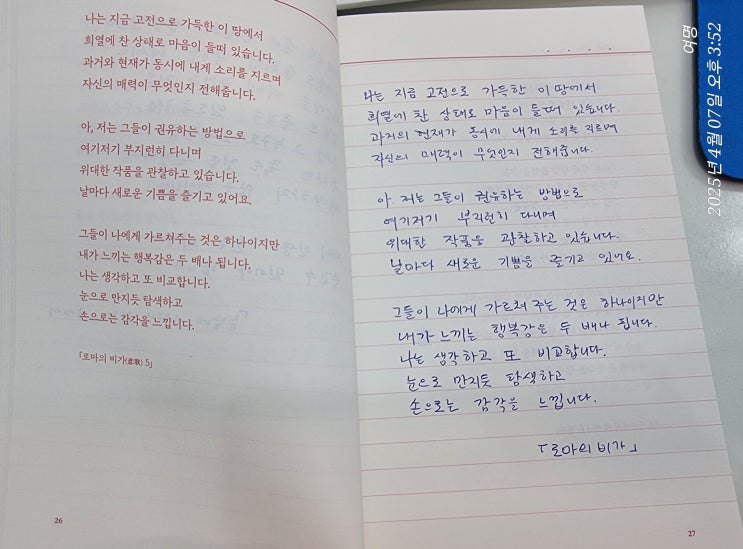 나는 지금 고전으로 가득한 이 땅에서
희열에 찬 상태로 마음이 들떠 있습니다.
과거와 현재가 동시에 내게 소리를 지르며
자신의 매력이 무엇인지 전해줍니다.
아, 저는 그들이 권유하는 방법으로
여기저기 부지런히 다니며
위대한 작품을 관찰하고 있습니다.
날마다 새로운 기쁨을 즐기고 있어요.
그들이 나에게 가르쳐주는 것은 하나이지만
내가 느끼는 행복감은 두 배나 됩니다.
나는 생각하고 또 비교합니다.
눈으로 만지듯 탐색하고
손으로는 감각을 느낍니다.
「로마의 비가(悲歌) 5」
26
나는 지금 고전으로 가득한 이 땅에서
희열에 찬 상태로 마음이 들떠 있습니다.
과거의 현재가 동시에 내게 소리를 지르며
자신의 매력이 무엇인지 전해줍니다.
아. 저는 그들이 권유하는 방법으로
여기저기 부지런히 다니며
위대한 작품을 관찰하고 있습니다.
날마다 새로운 기쁨을 즐기고 있어요.
그들이 나에게 가르쳐 주는 것은 하나이지만
내가 느끼는 행복감은 두 배나 됩니다.
나는 생각하고 또 비교합니다.
눈으로 만지듯 탐색하고
손으로는 감각을 느낍니다.
「로마의 비가」
27
여명
2025년 4월 07일 오후 3:52